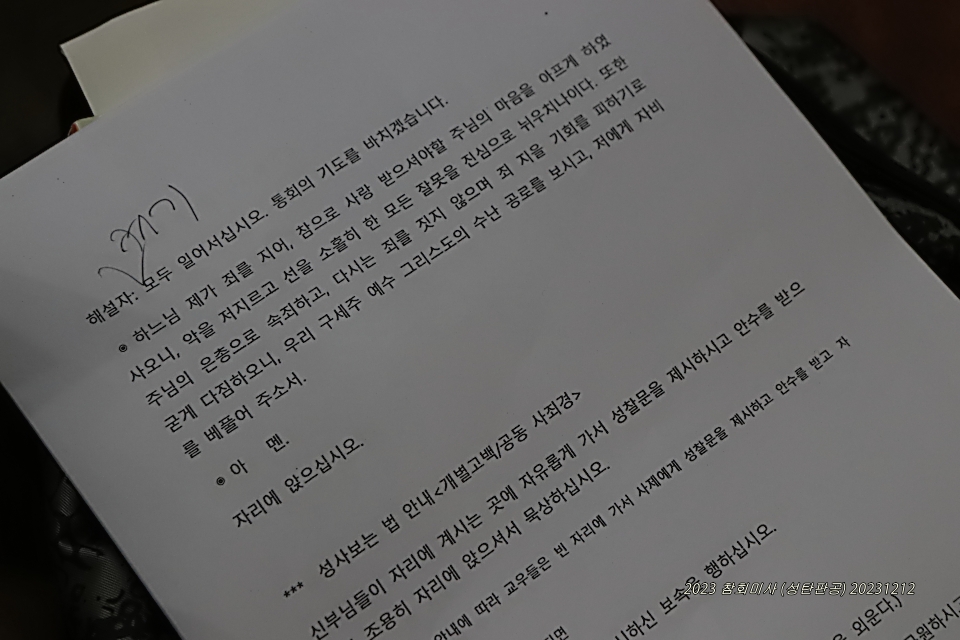 해설자: 모두 일어서십시오. 통회의 기도를 바치겠습니다.
◉ 하느님 제가 죄를 지어, 참으로 사랑 받으셔야할 주님의 마음을 아프게 하였
사오니, 악을 저지르고 선을 소홀히 한 모든 잘못을 진심으로 뉘우치나이다. 또한
주님의 은총으로 속죄하고, 다시는 죄를 짓지 않으며 죄 지을 기회를 피하기로
굳게 다짐하오니, 우리 구세주 예수 그리스도의 수난 공로를 보시고, 저에게 자비
를 베풀어 주소서.
◉ 아 멘.
자리에 앉으십시오.
*** 성사보는 법 안내<개별고백/공동 사죄경>
신부님들이 자리에 계시는 곳에 자유롭게 가서 성찰문을 제시하시고 안수를 받으
조용히 자리에 앉으셔서 묵상하십시오.
안내에 따라 교우들은 빈 자리에 가서 사제에게 성찰문을 제시하고 안수를 받고 자
시하신 보속을 행하십시오.
외운다.)
2023 참회미사 (성탄판공) 20231212